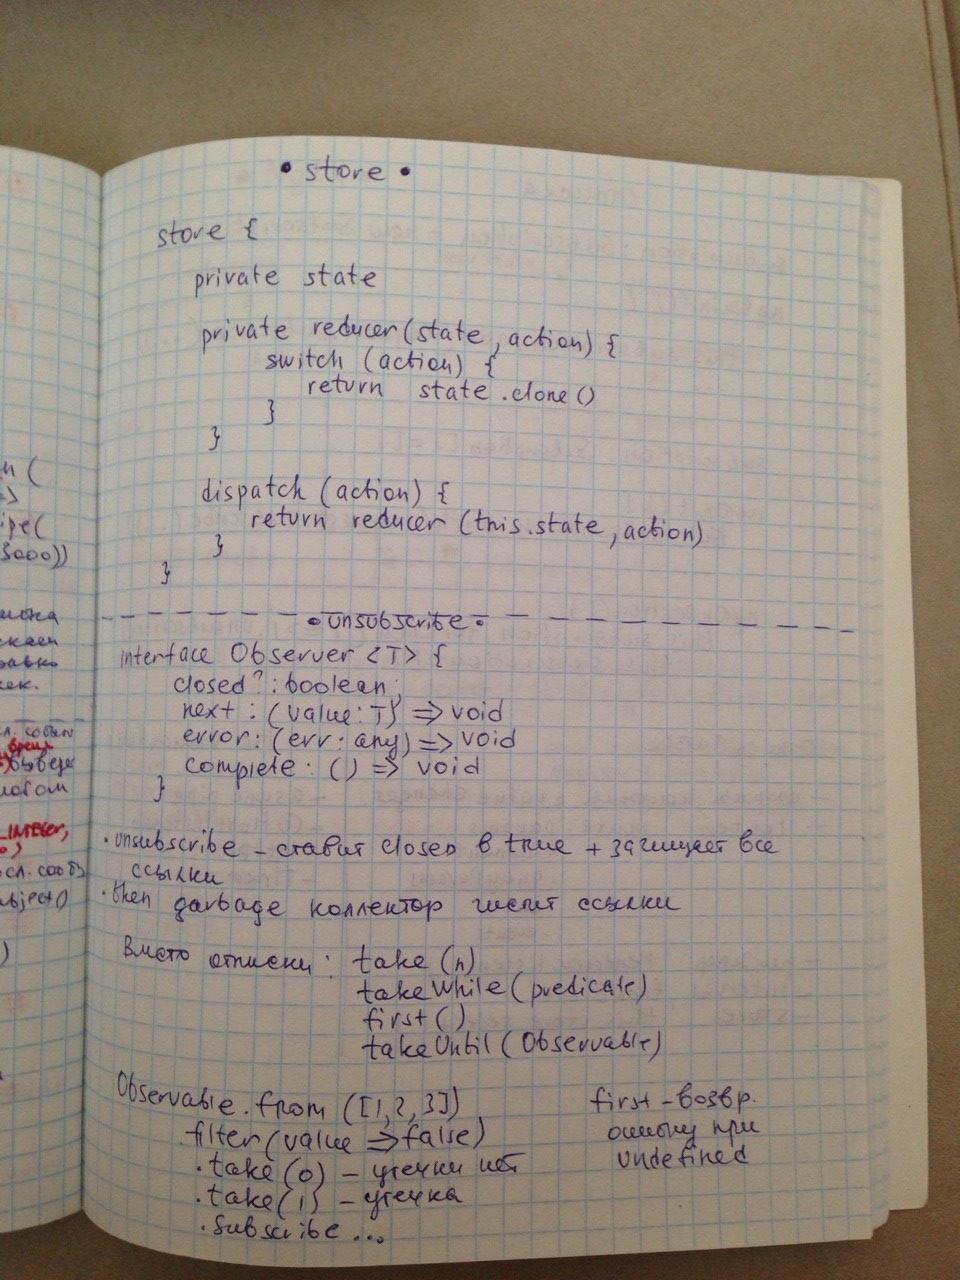 • store •
store {
private state
private reducer (state, action) {
switch (action) {
return state.clone()
}
}
dispatch (action) {
return reducer (this.state, action)
}
}
• unsubscribe •
interface Observer <T> {
closed? : boolean;
next : (value: T) => void
error: (err: any) => void
complete : () => void
}
• unsubscribe – ставит closed в true + зачищает все
ссылки
• then garbage коллектор чистит ссылки
Вместо отписки : take (n)
takeWhile (predicate)
first ()
takeUntil (Observable)
Observable.from ([1, 2, 3])
filter (value => false)
.take (0) – утечки нет
.take (1) – утечка
.subscribe ...
first – возвр.
ошибку при
undefined
ipe(
3000))
ек.
INTEGER,
bject()
)